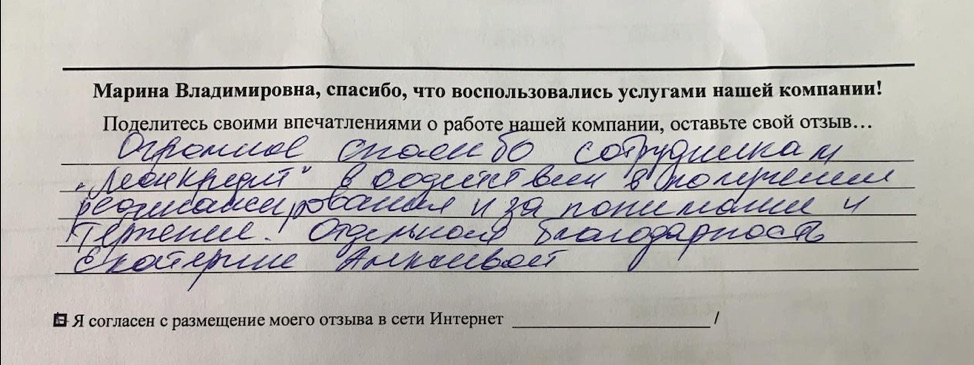 Марина Владимировна, спасибо, что воспользовались услугами нашей компании!
Поделитесь своими впечатлениями о работе нашей компании, оставьте свой отзыв…
Огромное спасибо сотрудникам
в содействии в получении
рефинансирования и за понимание и
терпение. Отдельная благодарность
Екатерине
Я согласен с размещение моего отзыва в сети Интернет /